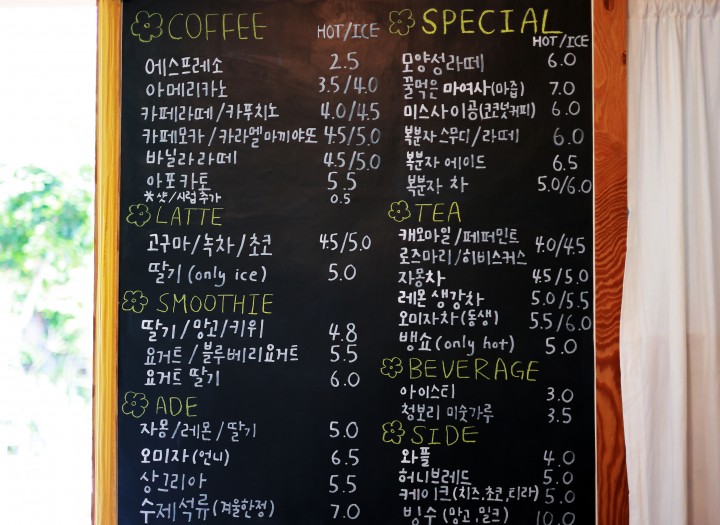 COFFEE HOT/ICE
에스프레소 2.5
아메리카노 3.5/4.0
카페라떼/카푸치노 4.0/4.5
카페모카/카라멜마끼야또 4.5/5.0
바닐라라떼 4.5/5.0
아포카토 5.5
*샷/시럽추가 0.5
LATTE
고구마/녹차/초코 4.5/5.0
딸기(only ice) 5.0
SMOOTHIE
딸기/망고/키위 4.8
요거트/블루베리요거트 5.5
요거트 딸기 6.0
ADE
자몽/레몬/딸기 5.0
오미자(언니) 6.5
상그리아 5.5
수제석류(겨울한정) 7.0
SPECIAL HOT/ICE
모양성라떼 6.0
꿀먹은 마여사(마즙) 7.0
미스사이공(코코넛커피) 6.0
복분자스무디/라떼 6.0
복분자 에이드 6.5
복분자 차 5.0/6.0
TEA
캐모마일/페퍼민트
로즈마리/히비스커스 4.0/4.5
자몽차 4.5/5.0
레몬 생강차 5.0/5.5
오미자차(동생) 5.5/6.0
뱅쇼(only hot) 5.0
BEVERAGE
아이스티 3.0
청보리 미숫가루 3.5
SIDE
와플 4.0
허니브레드 5.0
케이크(치즈,초코,티라) 5.0
빙수(망고,밀크) 10.0